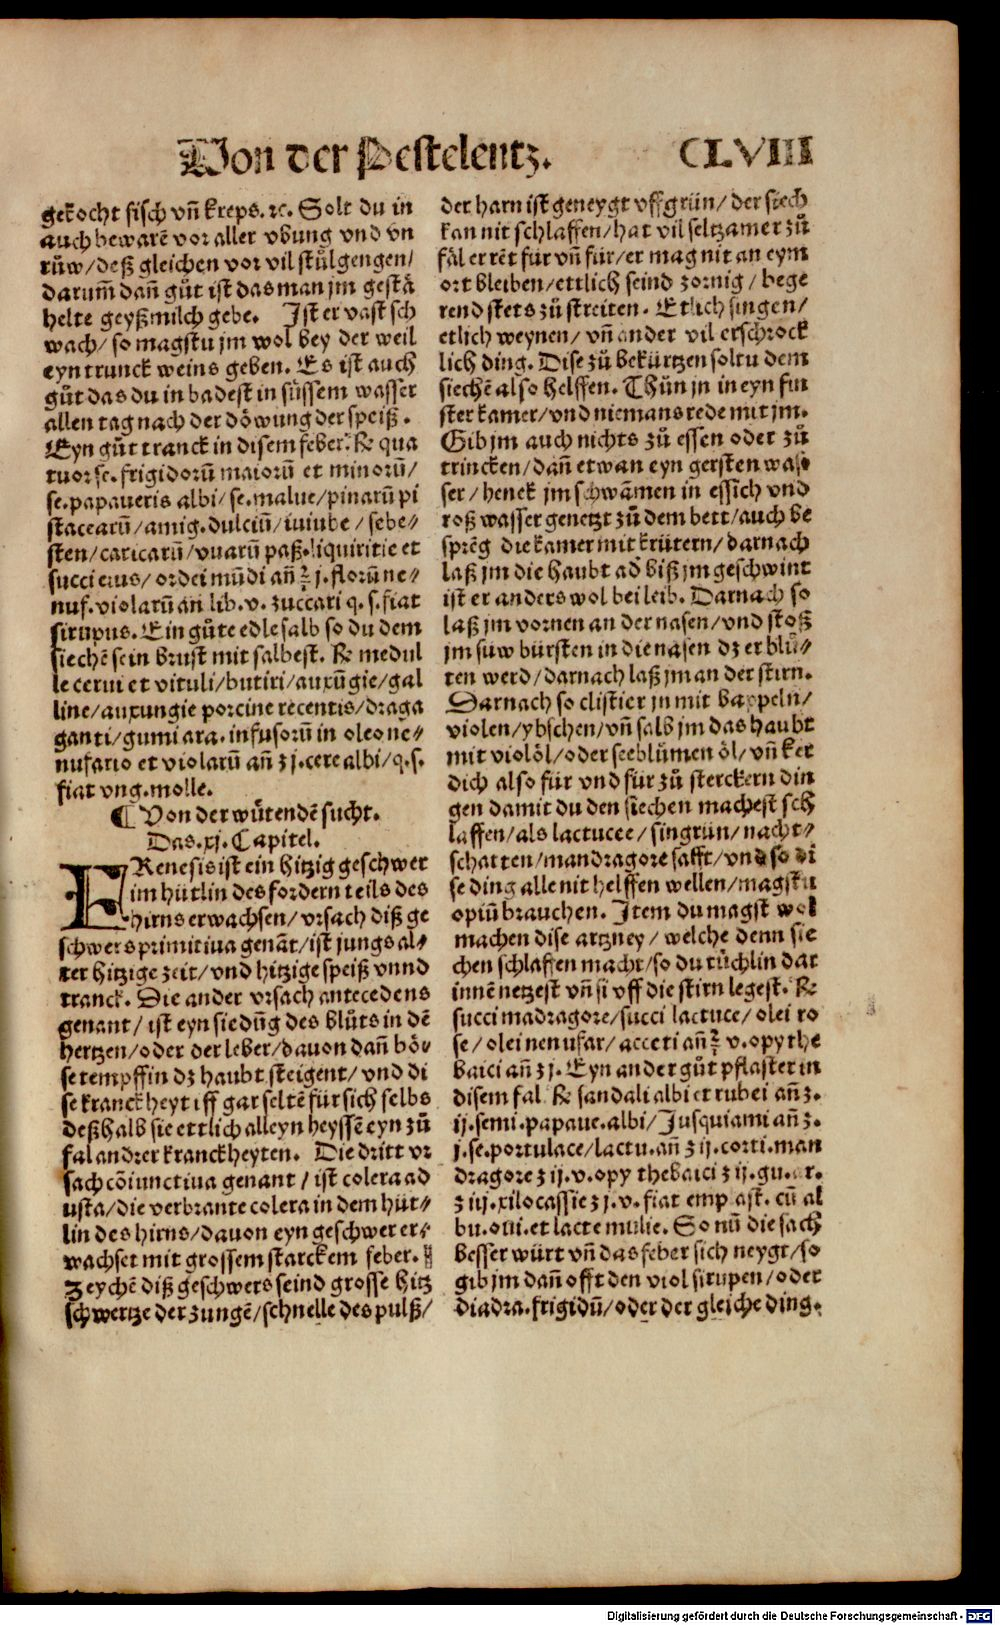 Von der Pestelentz. CLVIII
gekocht fisch vñ kreps. ꝛc. Solt du in
auch bewarē vor aller vbung vnd vn
růw/deß gleichen vor vil stůlgengen/
darum̄ dañ gůt ist das man jm gestä
helte geyßmilch gebe. Ist er vast sch
wach/so magstu jm wol bey der weil
eyn trunck weins geben. Es ist auch
gůt das du in badest in süssem wasser
allen tag nach der döwung der speiß.
Eyn gůt tranck in disem feber. ℞ qua
tuor se. frigidorū maiorū et minorū/
se. papaueris albi/se. malue/pinarū pi
stacearū/amig. dulciū/iuiube/sebe⸗
sten/caricarū/vuarū paß. liquiritie et
succi eius/ordei mūdi añ ℥ j. florū ne⸗
nuf. violarū an lib. v. zuccari q. s. fiat
sirupus. Ein gůte edle salb so du dem
siechē sein brust mit salbest. ℞ medul
le cerui et vituli/butiri/auxūgie/gal
line/auxungie porcine recentis/draga
ganti/gumi ara. infusorū in oleo ne⸗
nufario et violarū añ ʒ j. cere albi/q. s.
fiat vng. molle.
¶ Von der wůtendē sucht.
Das. xj. Capitel.
FRenesis ist ein hitzig geschwer
im hütlin des fordern teils des
hirns erwachsen/vrsach diß ge
schwers primitiua genāt/ist jungs al⸗
ter hitzige zeit/vnd hitzige speiß vnnd
tranck. Die ander vrsach antecedens
genant/ist eyn siedūg des blůts in dē
hertzen/oder der leber/dauon dañ bö⸗
se tempff in dz haubt steigent/vnd di
se kranckheyt iff gar seltē für sich selbs
deßhalb sie ettlich alleyn heyssē eyn zů
fal andrer kranckheyten. Die dritt vr
sach cōiunctiua genant/ist colera ad
usta/die verbrante colera in dem hüt⸗
lin des hirns/dauon eyn geschwer er⸗
wachset mit grossem starckem feber.
Zeychē diß geschwers seind grosse hitz
schwertze der zungē/schnelle des pulß/
der harn ist geneygt vff grün/der siech
kan nit schlaffen/hat vil seltzamer zů
fäl er rēt für vñ für/er mag nit an eym
ort bleiben/ettlich seind zornig/bege
rend stets zů streiten. Etlich singen/
etlich weynen/vñ ander vil erschrock
lich ding. Dise zů bekürtzen soltu dem
siechē also helffen. Thůn jn in eyn fin
ster kamer/vnd niemans rede mit jm.
Gib jm auch nichts zů essen oder zů
trincken/dañ etwan eyn gersten was⸗
ser/henck jm schwämen in essich vnd
roß wasser genetzt zů dem bett/auch be
sprēg die kamer mit krütern/darnach
laß jm die haubt ad biß jm geschwint
ist er anders wol bei leib. Darnach so
laß jm vornen an der nasen/vnd stoß
jm süw bürsten in die nasen dz er blů⸗
ten werd/darnach laß jm an der stirn.
Darnach so clistier jn mit bappeln/
violen/ybschen/vñ salb jm das haubt
mit violöl/oder seeblůmen öl/vñ ker
dich also für vnd für zů sterckern din
gen damit du den siechen machest sch
laffen/als lactucee/singrün/nacht⸗
schatten/mandragore safft/vnd so di
se ding alle nit helffen wellen/magstu
opiū brauchen. Item du magst wol
machen dise artzney/welche denn sie
chen schlaffen macht/so du tüchlin dar
innē netzest vñ si vff die stirn legest. ℞
succi madragore/succi lactuce/olei ro
se/olei nenufar/acceti añ ℥ v. opy the
baici añ ʒ j. Eyn ander gůt pflaster in
disem fal ℞ sandali albi et rubei añ ʒ.
ij. semi. papaue. albi/Jusquiami añ ʒ.
j. se. portulace/lactu. añ ʒ ij. corti. man
dragore ʒ ij. v. opy thebaici ʒ ij. gu. ar.
ʒ iij. xilocassie ʒ j. v. fiat emplast. cū al
bu. oui. et lacte mulie. So nū die sach
besser würt vñ das feber sich neygt/so
gib jm dañ offt den viol sirupen/oder
diadra. frigidū/oder der gleiche ding.
Digitalisierung gefördert durch die Deutsche Forschungsgemeinschaft - DFG